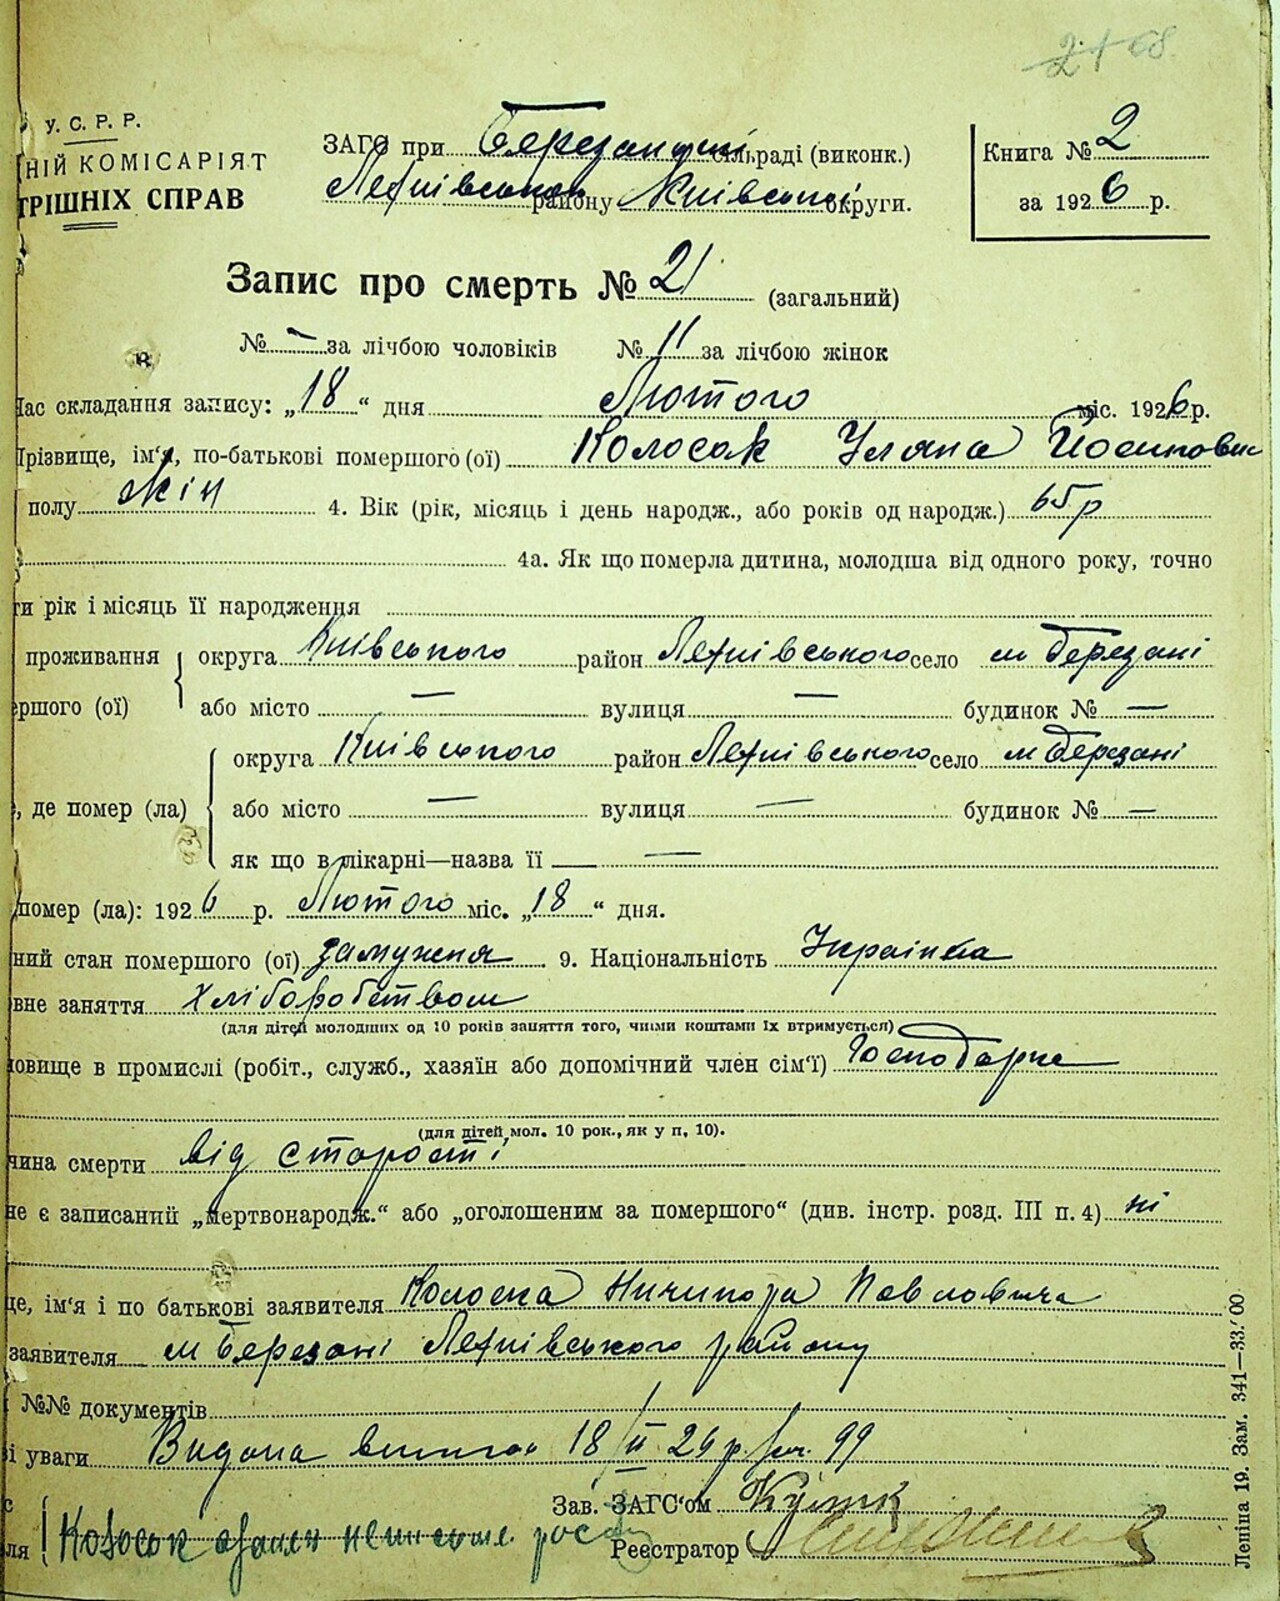 У. С. Р. Р.
НІЙ КОМІСАРІЯТ
ТРІШНІХ СПРАВ
ЗАГС при Березанській сільраді (виконк.)
району Київської округи.
Книга № 2
за 1926 р.
Запис про смерть № 21 (загальний)
№ – за лічбою чоловіків № 11 за лічбою жінок
Час складання запису: „18“ дня Лютого міс. 1926 р.
Прізвище, ім‘я, по-батькові помершого (ої) Колосак Уляна Йосиповн
полу жін 4. Вік (рік, місяць і день народж., або років од народж.) 65 р
4а. Як що померла дитина, молодша від одного року, точно
ти рік і місяць її народження
проживання округа Київського район село м Березані
ершого (ої) або місто — вулиця — будинок № —
округа Київського район село м Березані
, де помер (ла) або місто — вулиця — будинок № —
як що в лікарні—назва її —
помер (ла): 1926 р. Лютого міс. „18“ дня.
ний стан помершого (ої) замужня 9. Національність Українка
вне заняття Хліборобством
(для дітей молодших од 10 років заняття того, чиїми коштами їх втримується)
овище в промислі (робіт., служб., хазяїн або допомічний член сім‘ї) Господарка
(для дітей мол. 10 рок., як у п, 10).
чина смерти від старості
не є записаний „мертвонародж.“ або „оголошеним за помершого“ (див. інстр. розд. III п. 4) ні
ще, ім‘я і по батькові заявителя Ничипора Павловича
заявителя м Березані району
№№ документів
і уваги Видана 18/II 26 р. 99
Зав. ЗАГС‘ом
ля
Реєстратор
Леніна 19. Зам. 341—33.‘00